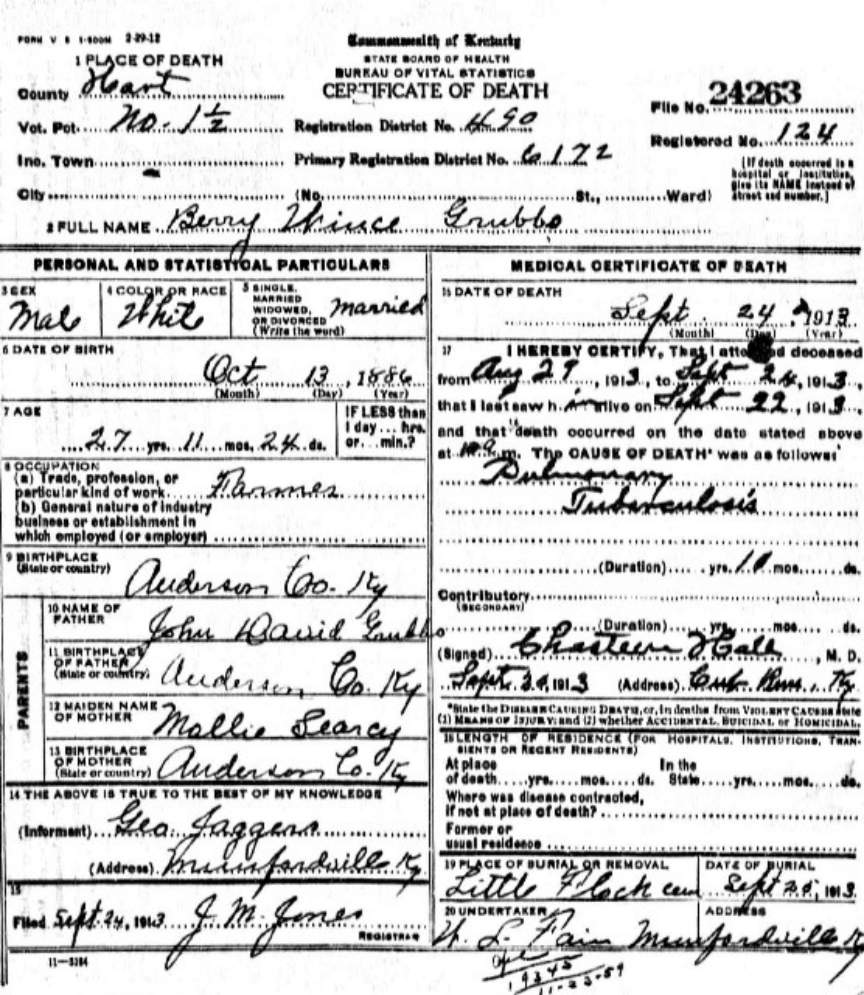 FORM V S 1-500M 2-29-12
Commonwealth of Kentucky
STATE BOARD OF HEALTH
BUREAU OF VITAL STATISTICS
CERTIFICATE OF DEATH
1 PLACE OF DEATH
County Hart
Vot. Pct. No. 1 1/2
Inc. Town
City
Registration District No. 490
Primary Registration District No. 6172
(No. St., Ward)
File No. 24263
Registered No. 124
[If death occurred in a
hospital or institution,
give its NAME instead of
street and number.]
2 FULL NAME Berry Grubbs
PERSONAL AND STATISTICAL PARTICULARS
3 SEX
Male
4 COLOR OR RACE
White
5 SINGLE,
MARRIED
WIDOWED,
OR DIVORCED
(Write the word)
Married
6 DATE OF BIRTH
Oct 13, 1886
(Month) (Day) (Year)
7 AGE
27 yrs. 11 mos. 24 ds.
IF LESS than
1 day... hrs.
or... min.?
8 OCCUPATION
(a) Trade, profession, or
particular kind of work Farmer
(b) General nature of industry
business or establishment in
which employed (or employer)
9 BIRTHPLACE
(State or country) Anderson Co. Ky
PARENTS
10 NAME OF
FATHER
John David Grubbs
11 BIRTHPLACE
OF FATHER
(State or country) Anderson Co. Ky
12 MAIDEN NAME
OF MOTHER
Mollie Searcy
13 BIRTHPLACE
OF MOTHER
(State or country) Anderson Co. Ky
14 THE ABOVE IS TRUE TO THE BEST OF MY KNOWLEDGE
(Informant) Geo. Jaggers
(Address) Munfordville Ky
15
Filed Sept. 24, 1913 J. M. Jones
REGISTRAR
11-3184
MEDICAL CERTIFICATE OF DEATH
16 DATE OF DEATH
Sept 24, 1913
(Month) (Day) (Year)
17 I HEREBY CERTIFY, That I attended deceased
from Aug 29, 1913, to Sept 24, 1913,
that I last saw him alive on Sept 22, 1913,
and that death occurred on the date stated above
at m. The CAUSE OF DEATH* was as follows:
Pulmonary
Tuberculosis
(Duration) yrs. 10 mos. ds.
Contributory
(SECONDARY)
(Duration) yrs. mos. ds.
(Signed) Chasteen Hall, M. D.
Sept, 1913 (Address) Cub Run, Ky.
*State the DISEASE CAUSING DEATH, or, in deaths from VIOLENT CAUSES state
(1) MEANS OF INJURY; and (2) whether ACCIDENTAL, SUICIDAL or HOMICIDAL.
18 LENGTH OF RESIDENCE (FOR HOSPITALS, INSTITUTIONS, TRAN-
SIENTS OR RECENT RESIDENTS)
At place In the
of death yrs. mos. ds. State yrs. mos. ds.
Where was disease contracted,
if not at place of death?
Former or
usual residence
19 PLACE OF BURIAL OR REMOVAL
Little Flock cem
DATE OF BURIAL
Sept 25, 1913
20 UNDERTAKER
W. L. Fain
ADDRESS
Munfordville Ky
19345
11-23-59